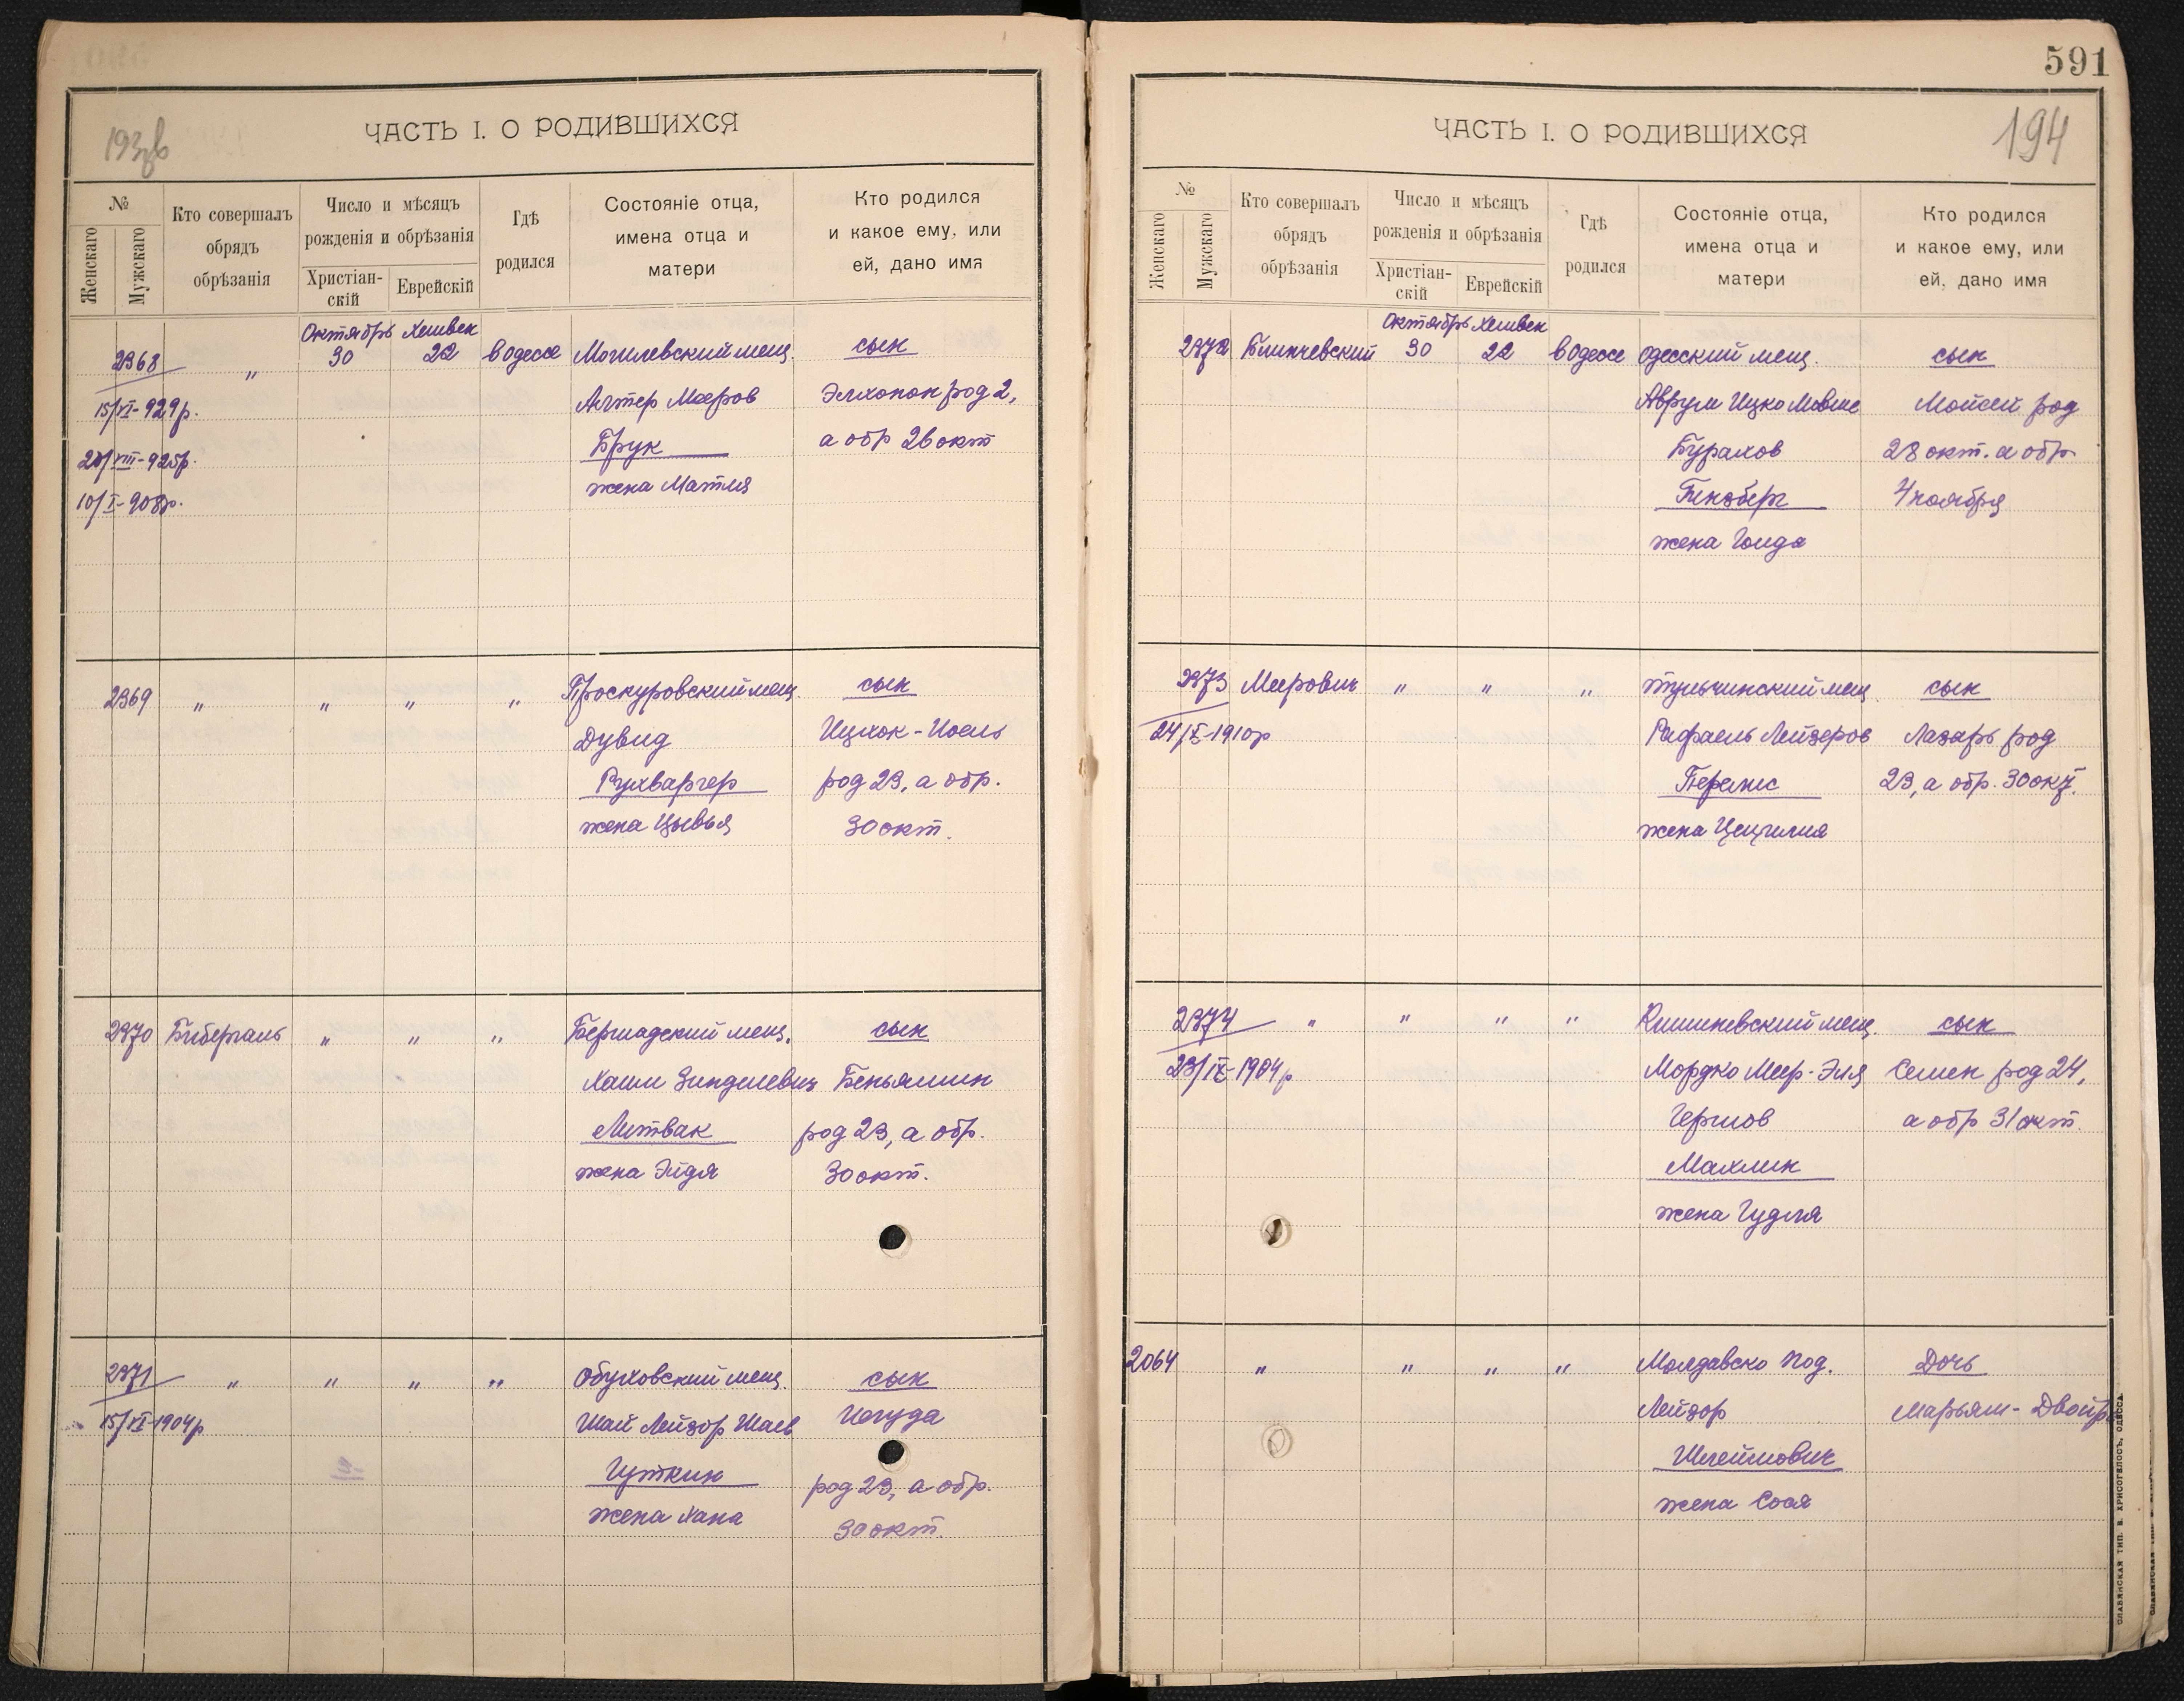 193об
ЧАСТЬ I. О РОДИВШИХСЯ
№
Женскаго
Мужскаго
Кто совершалъ
обрядъ
обрѣзанія
Число и мѣсяцъ
рожденія и обрѣзанія
Христіан-
скій
Еврейскій
Гдѣ
родился
Состояніе отца,
имена отца и
матери
Кто родился
и какое ему, или
ей, дано имя
Октябрь Хешвен
2368 " 30 22 в Одессе Могилевский мещ. сын
15/VI-929р. Алтер Мееров Элхонон род 2,
VIII-925р. Брук а обр 26 окт
10/I-908р. жена Матля
2369 " " " " Проскуровский мещ. сын
Дувид Ицхок-Иоель
Рухваргер род 23, а обр.
жена Цывья 30 окт.
2370 Бибергаль " " " Бершадский мещ. сын
Хаим Зинделевич Беньямин
Литвак род 23, а обр.
жена Эйдя 30 окт.
2371 " " " " Обуховский мещ. сын
15/VI-1904р Шай Лейзор Шаев Иегуда
Гуткин род 23, а обр.
жена Хана 30 окт.
591
194
ЧАСТЬ I. О РОДИВШИХСЯ
№
Женскаго
Мужскаго
Кто совершалъ
обрядъ
обрѣзанія
Число и мѣсяцъ
рожденія и обрѣзанія
Христіан-
скій
Еврейскій
Гдѣ
родился
Состояніе отца,
имена отца и
матери
Кто родился
и какое ему, или
ей, дано имя
Октябрь Хешвен
2372 Блинчевский 30 22 в Одессе одесский мещ. сын
Аврум Ицко Мовше Мойсей род
Бурахов 28 окт. а обр
Гинзберг 4 ноября
жена Голда
2373 Меерович " " " тульчинский мещ сын
24/IX-1910р Рафаель Лейзеров Лазарь род
Перлис 23, а обр. 30 окт.
жена Цецилия
2374 " " " " Кишиневский мещ. сын
23/IX-1904р Мордко Меер-Эля Семен род 24,
Гершов а обр 31 окт.
Махлин
жена Гудля
2064 " " " " Молдавско под. Дочь
Лейзор Марьям-Двойра
Шлеймович
жена Сося
СЛАВЯНСКАЯ ТИП. В. ХРИСОГЕЛОСЪ, ОДЕССА